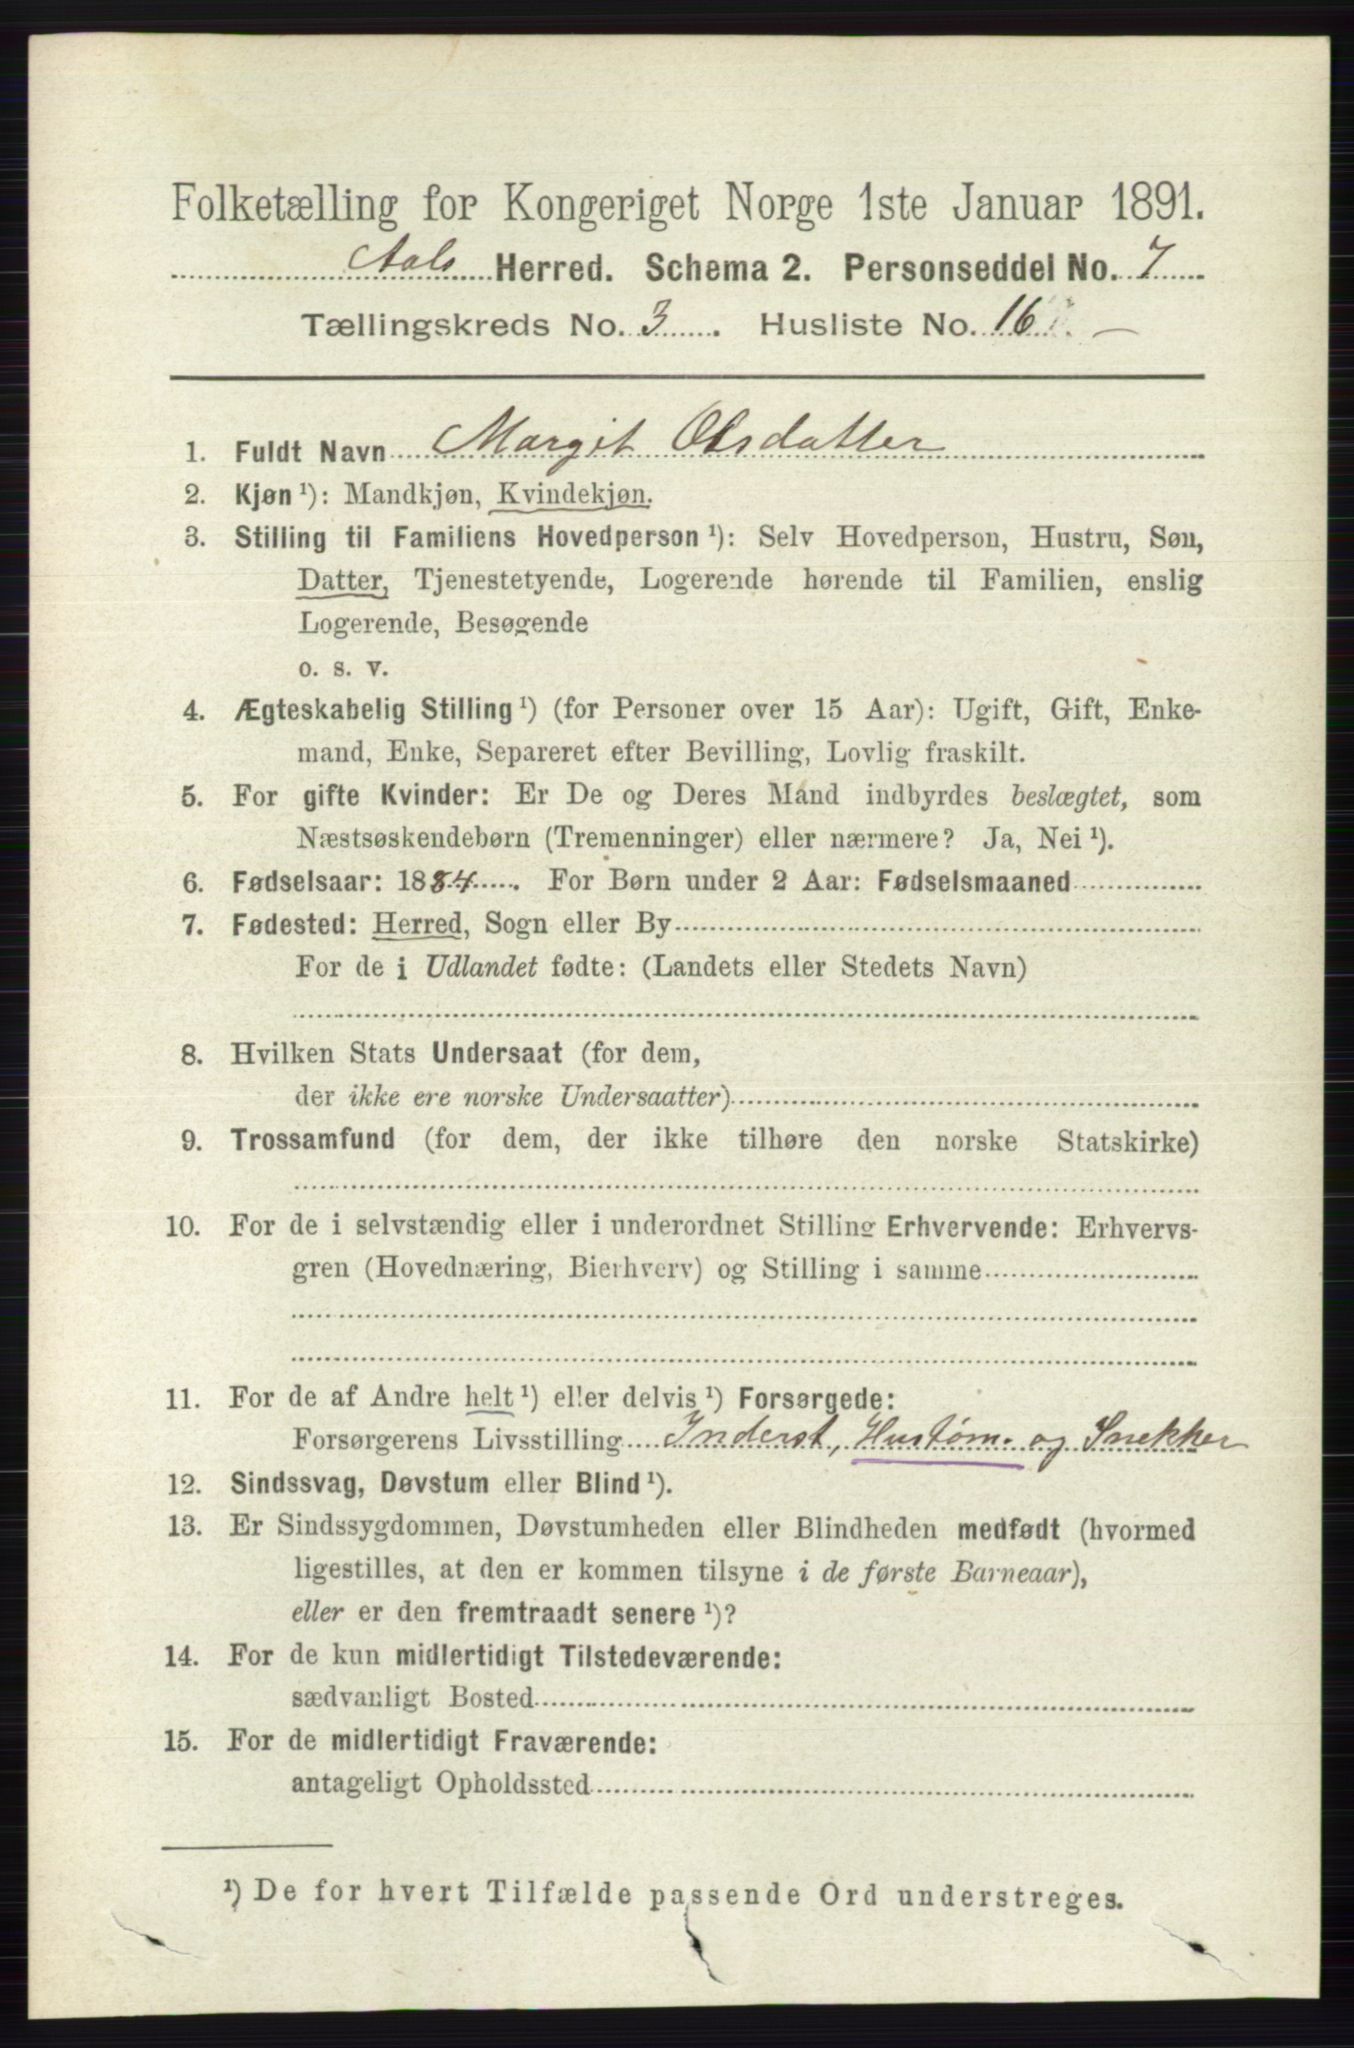 Folketælling for Kongeriget Norge 1ste Januar 1891.
Aals Herred. Schema 2. Personseddel No. 7
Tællingskreds No. 3. Husliste No. 16. —
1. Fuldt Navn Margit Olsdatter
2. Kjøn ¹): Mandkjøn, Kvindekjøn.
3. Stilling til Familiens Hovedperson ¹): Selv Hovedperson, Hustru, Søn,
Datter, Tjenestetyende, Logerende hørende til Familien, enslig
Logerende, Besøgende
o. s. v.
4. Ægteskabelig Stilling ¹) (for Personer over 15 Aar): Ugift, Gift, Enke-
mand, Enke, Separeret efter Bevilling, Lovlig fraskilt.
5. For gifte Kvinder: Er De og Deres Mand indbyrdes beslægtet, som
Næstsøskendebørn (Tremenninger) eller nærmere? Ja, Nei ¹).
6. Fødselsaar: 1884. For Børn under 2 Aar: Fødselsmaaned
7. Fødested: Herred, Sogn eller By
For de i Udlandet fødte: (Landets eller Stedets Navn)
8. Hvilken Stats Undersaat (for dem,
der ikke ere norske Undersaatter)
9. Trossamfund (for dem, der ikke tilhøre den norske Statskirke)
10. For de i selvstændig eller i underordnet Stilling Erhvervende: Erhvervs-
gren (Hovednæring, Bierhverv) og Stilling i samme
11. For de af Andre helt ¹) eller delvis ¹) Forsørgede:
Forsørgerens Livsstilling Inderst, Hustøm. og Snekker
12. Sindssvag, Døvstum eller Blind ¹).
13. Er Sindssygdommen, Døvstumheden eller Blindheden medfødt (hvormed
ligestilles, at den er kommen tilsyne i de første Barneaar),
eller er den fremtraadt senere ¹)?
14. For de kun midlertidigt Tilstedeværende:
sædvanligt Bosted
15. For de midlertidigt Fraværende:
antageligt Opholdssted
¹) De for hvert Tilfælde passende Ord understreges.